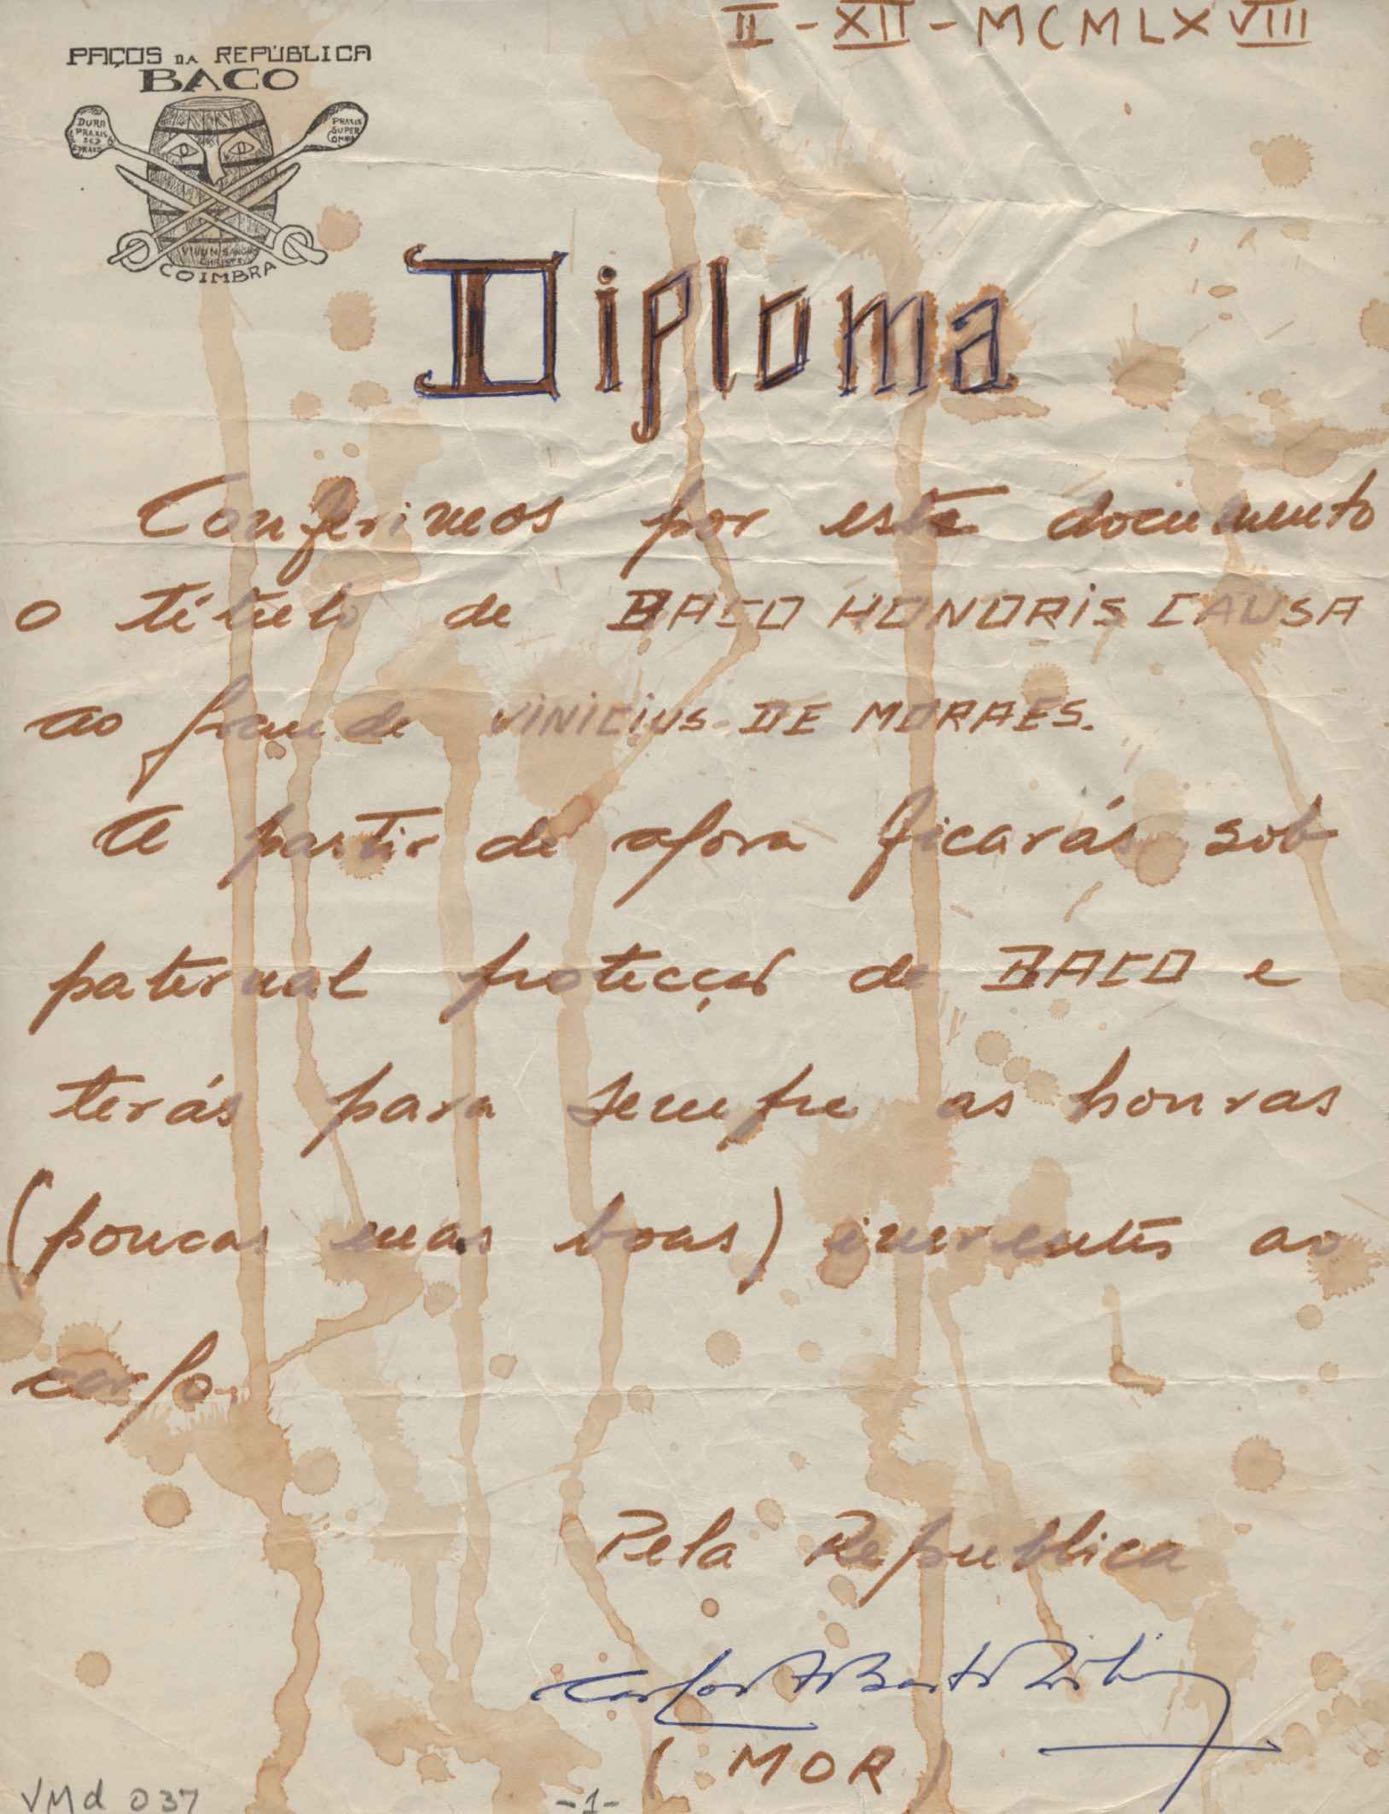 II - XII - MCMLXVIII
PAÇOS DA REPÚBLICA
BACO
DURA
PRAXIS
SED
PRAXIS
SUPER
OMNIA
COIMBRA
Diploma
Conferimos por este documento
o título de BACO HONORIS CAUSA
ao grande VINICIUS DE MORAES.
A partir de agora ficarás sob
paternal protecção de BACO e
terás para sempre as honras
(poucas mas boas) inerentes ao
cargo.
Pela Republica
Carlos
(MOR)
VMd 037
-1-